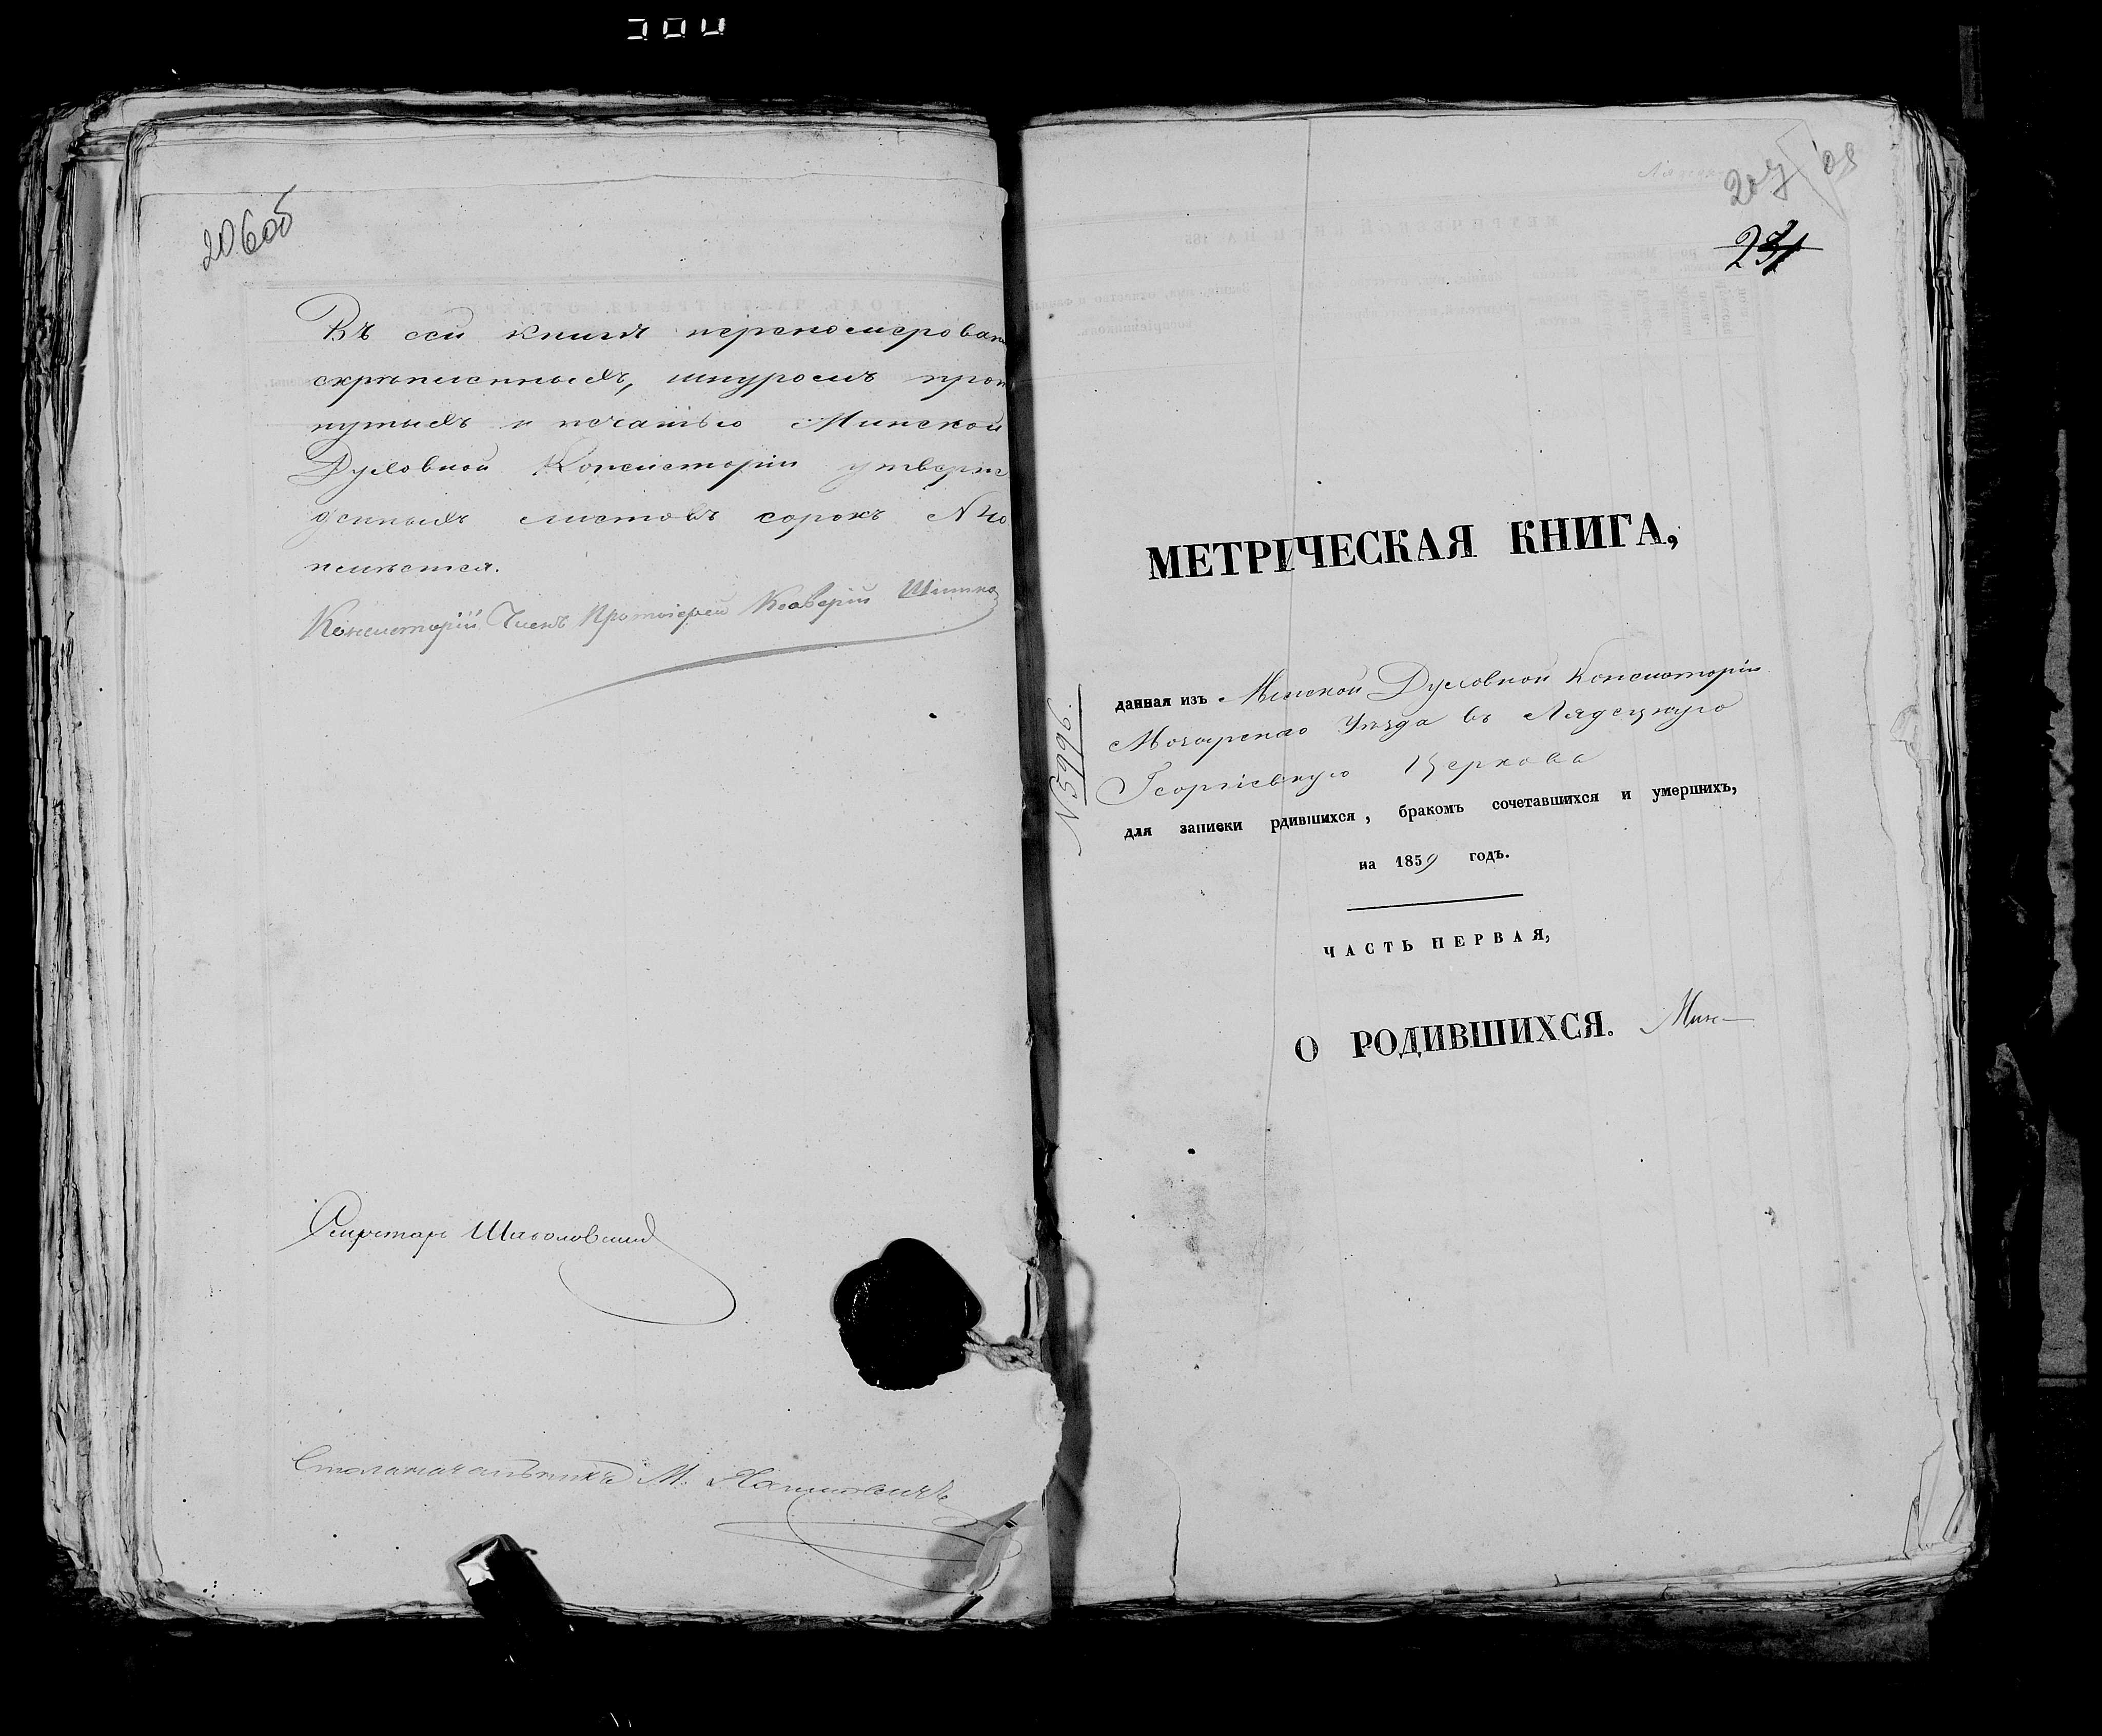 206об
Въ сей книгѣ перенумерован
скрѣпленныхъ, шнуромъ прон
нутыхъ и печатью Минской
Духовной Консисторіи утверж
денныхъ листовъ сорокъ N 40
имѣется.
Консисторіи Членъ Протоіерей Ксаверій
Секретарь
Столоначальникъ М.
207
231
МЕТРИЧЕСКАЯ КНИГА,
N 5996.
данная изъ Минской Духовной Консисторіи
Мозырскаго Уѣзда въ Лядецкую
Георгіевскую Церковь
для записки рдившихся, бракомъ сочетавшихся и умершихъ,
на 1859 годъ.
ЧАСТЬ ПЕРВАЯ,
О РОДИВШИХСЯ. Мин-